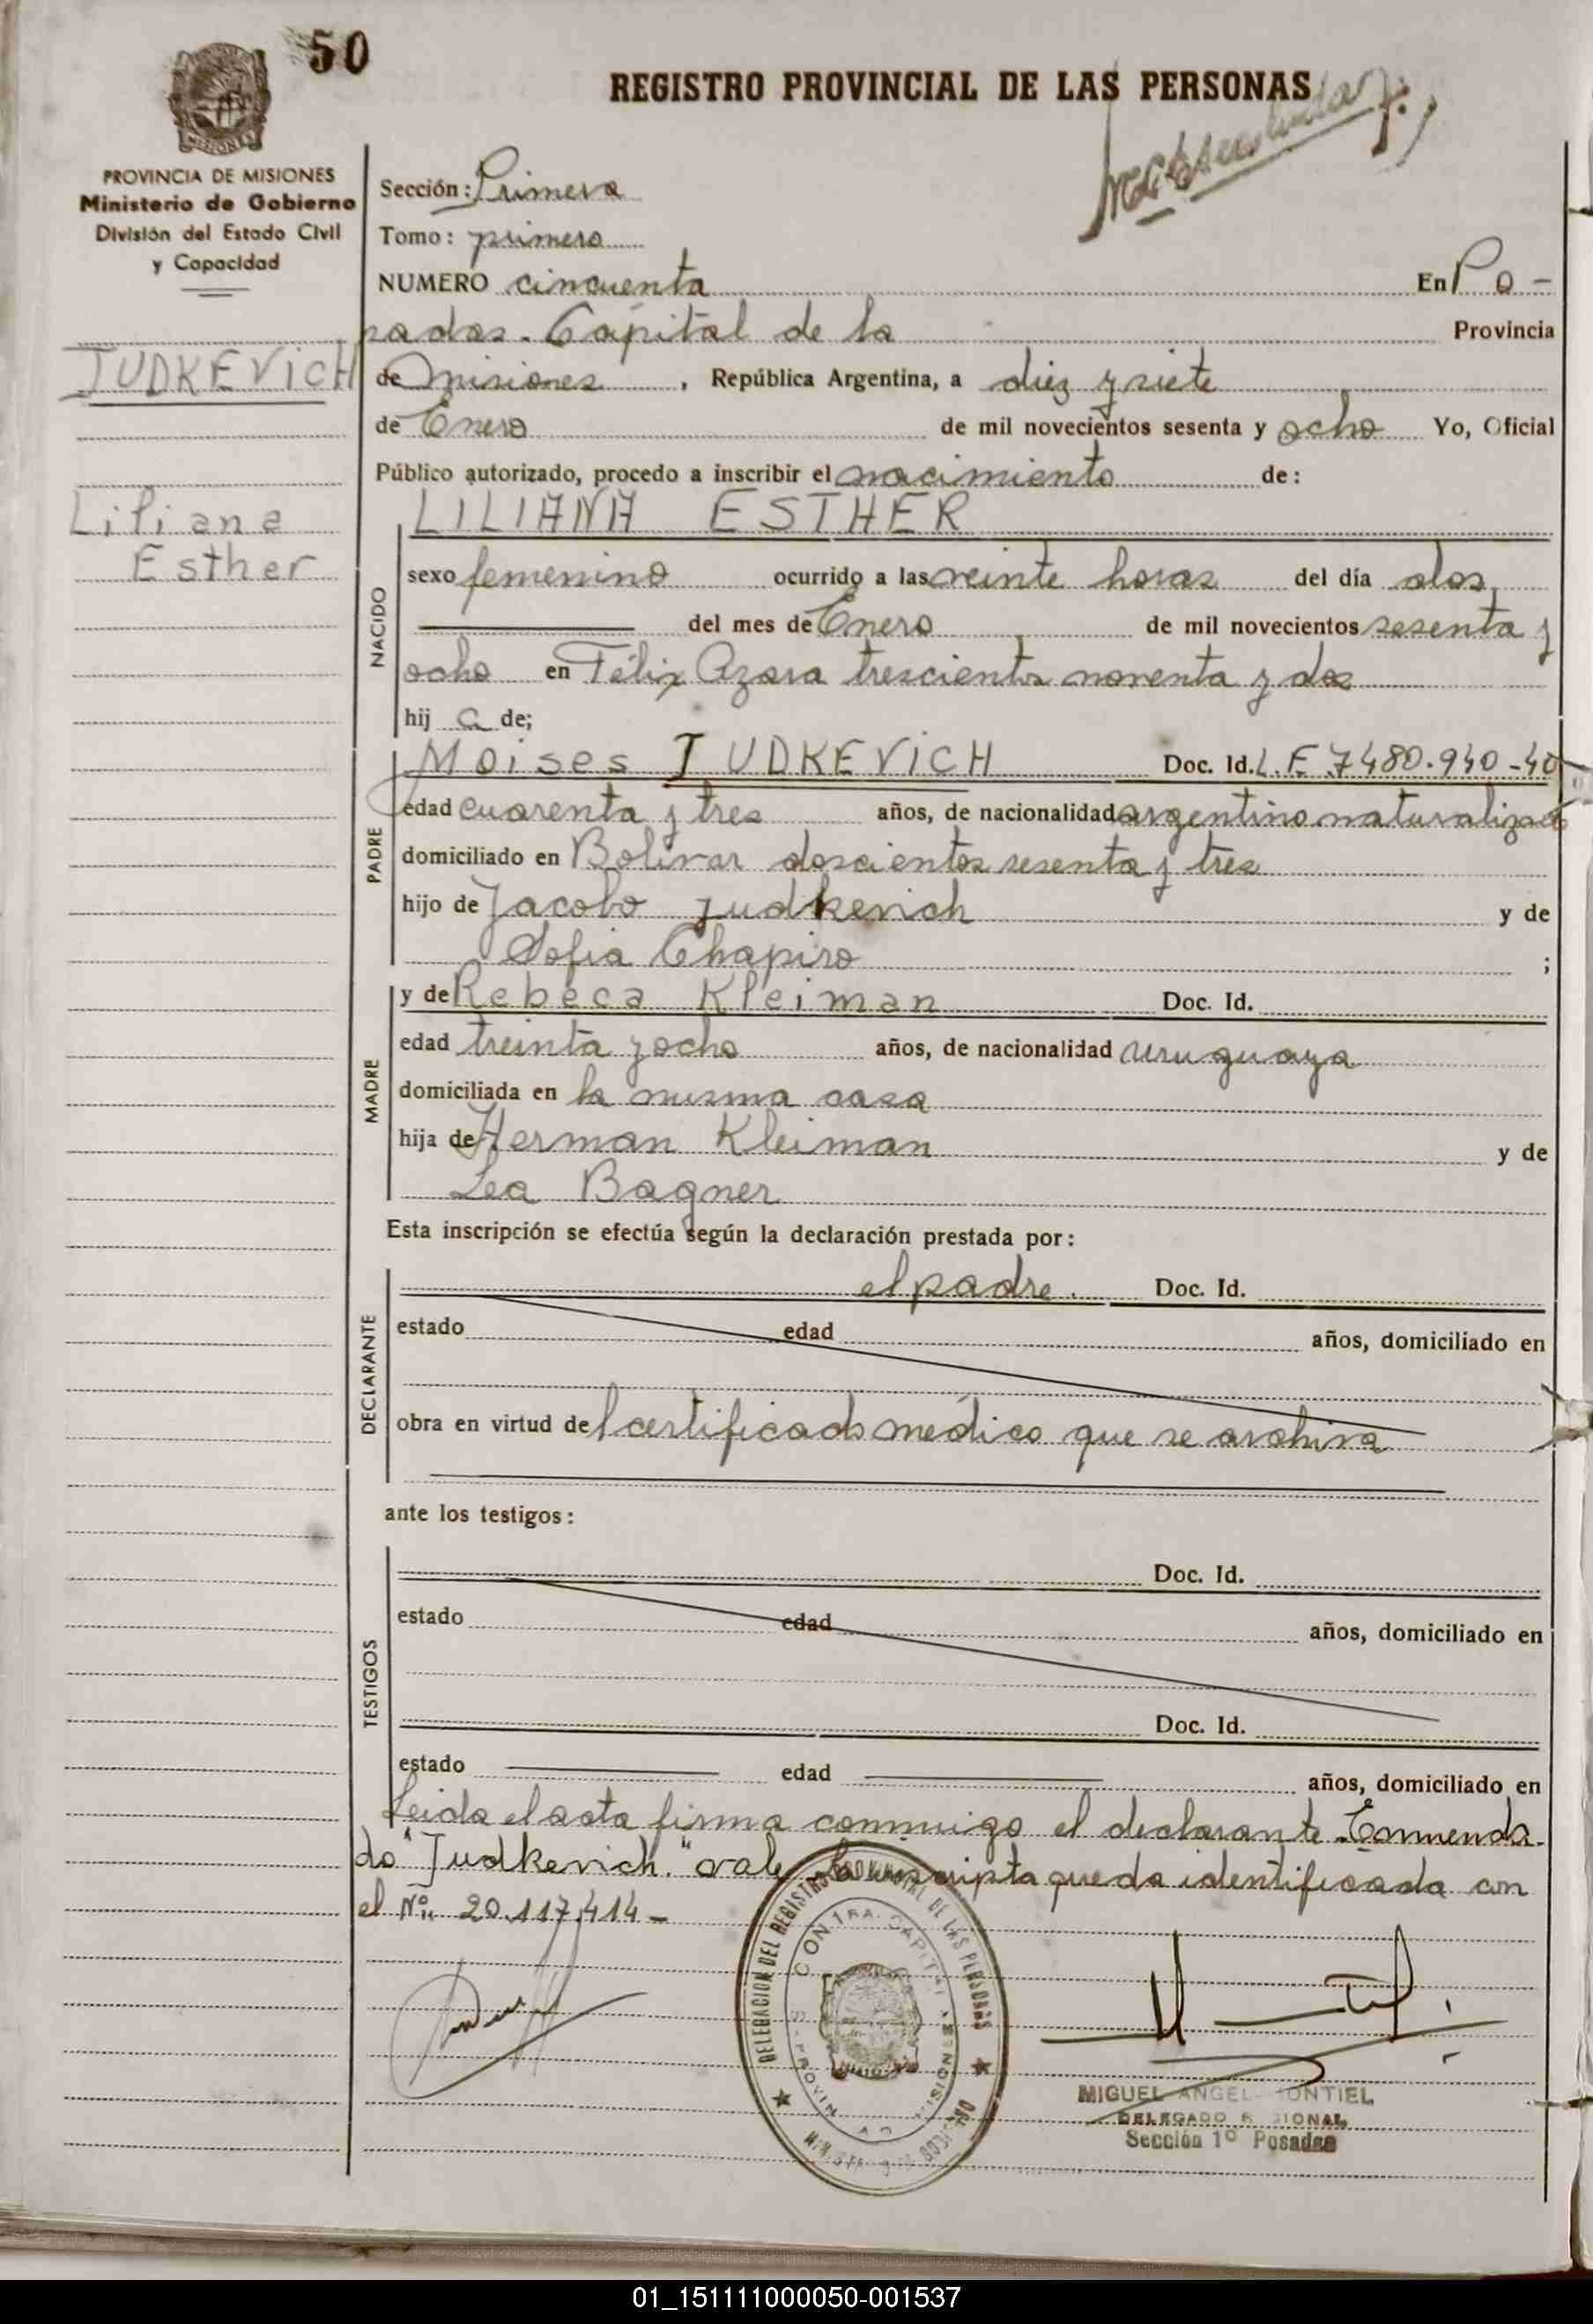 50
REGISTRO PROVINCIAL DE LAS PERSONAS
PROVINCIA DE MISIONES
Ministerio de Gobierno
División del Estado Civil
y Capacidad
Sección: Primera
Tomo: primero
NUMERO cincuenta En Po-
sadas. Capital de la Provincia
JUDKEVICH
de Misiones, República Argentina, a diez y siete
de Enero de mil novecientos sesenta y ocho Yo, Oficial
Público autorizado, procedo a inscribir el nacimiento de:
Liliana
Esther
LILIANA ESTHER
NACIDO
sexo femenino ocurrido a las veinte horas del día dos
del mes de Enero de mil novecientos sesenta y
ocho en Félix Azara trescientos noventa y dos
hij a de;
PADRE
Moises JUDKEVICH Doc. Id. L.E. 7480.940-40
edad cuarenta y tres años, de nacionalidad argentino naturalizado
domiciliado en Bolívar doscientos sesenta y tres
hijo de Jacobo Judkevich y de
Sofia Chapiro ;
MADRE
y de Rebeca Kleiman Doc. Id.
edad treinta y ocho años, de nacionalidad uruguaya
domiciliada en la misma casa
hija de Herman Kleiman y de
Lea Bagner
Esta inscripción se efectúa según la declaración prestada por:
DECLARANTE
el padre. Doc. Id.
estado edad años, domiciliado en
obra en virtud del certificado médico que se archiva
ante los testigos:
TESTIGOS
Doc. Id.
estado edad años, domiciliado en
Doc. Id.
estado edad años, domiciliado en
Leida el acta firma conmigo el declarante. Enmenda-
do "Judkevich." vale. La inscripta queda identificada con
el Nº: 20.117.414-
DELEGACION DEL REGISTRO PROVINCIAL DE LAS PERSONAS
MIGUEL ANGEL MONTIEL
DELEGADO REGIONAL
Sección 1º Posadas
01_151111000050-001537